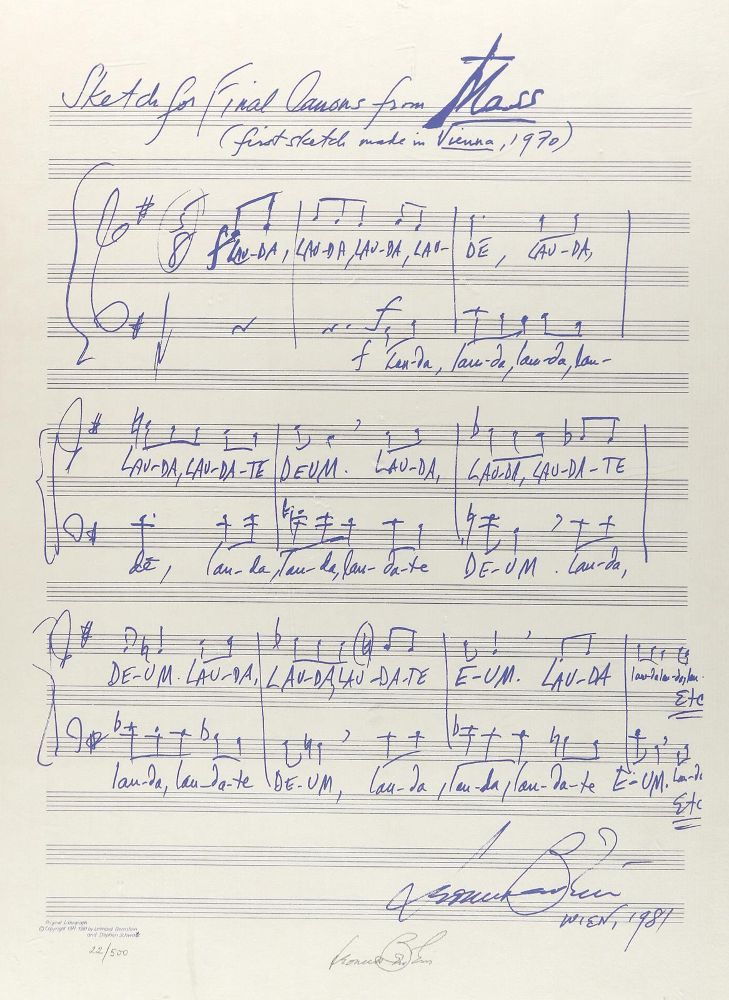 Sketch for Final Canons from Mass
(first sketch made in Vienna, 1970)
5
8
f LAU-DA, LAU-DA, LAU-DA, LAU- DE, LAU-DA,
f
f lau-da, lau-da, lau-da, lau-
LAU-DA, LAU-DA-TE DEUM. LAU-DA, LAU-DA, LAU-DA-TE
dē, lau-da, lau-da, lau-da-te DE-UM. lau-da,
DE-UM. LAU-DA, LAU-DA, LAU-DA-TE E-UM. LAU-DA lau-da lau-da, lau-
Etc
lau-da, lau-da-te DE-UM, lau-da, lau-da, lau-da-te E-UM. Lau-da
Etc
WIEN, 1981
Original Lithograph
© Copyright 1971, 1981 by Leonard Bernstein
and Stephen Schwartz
22/500